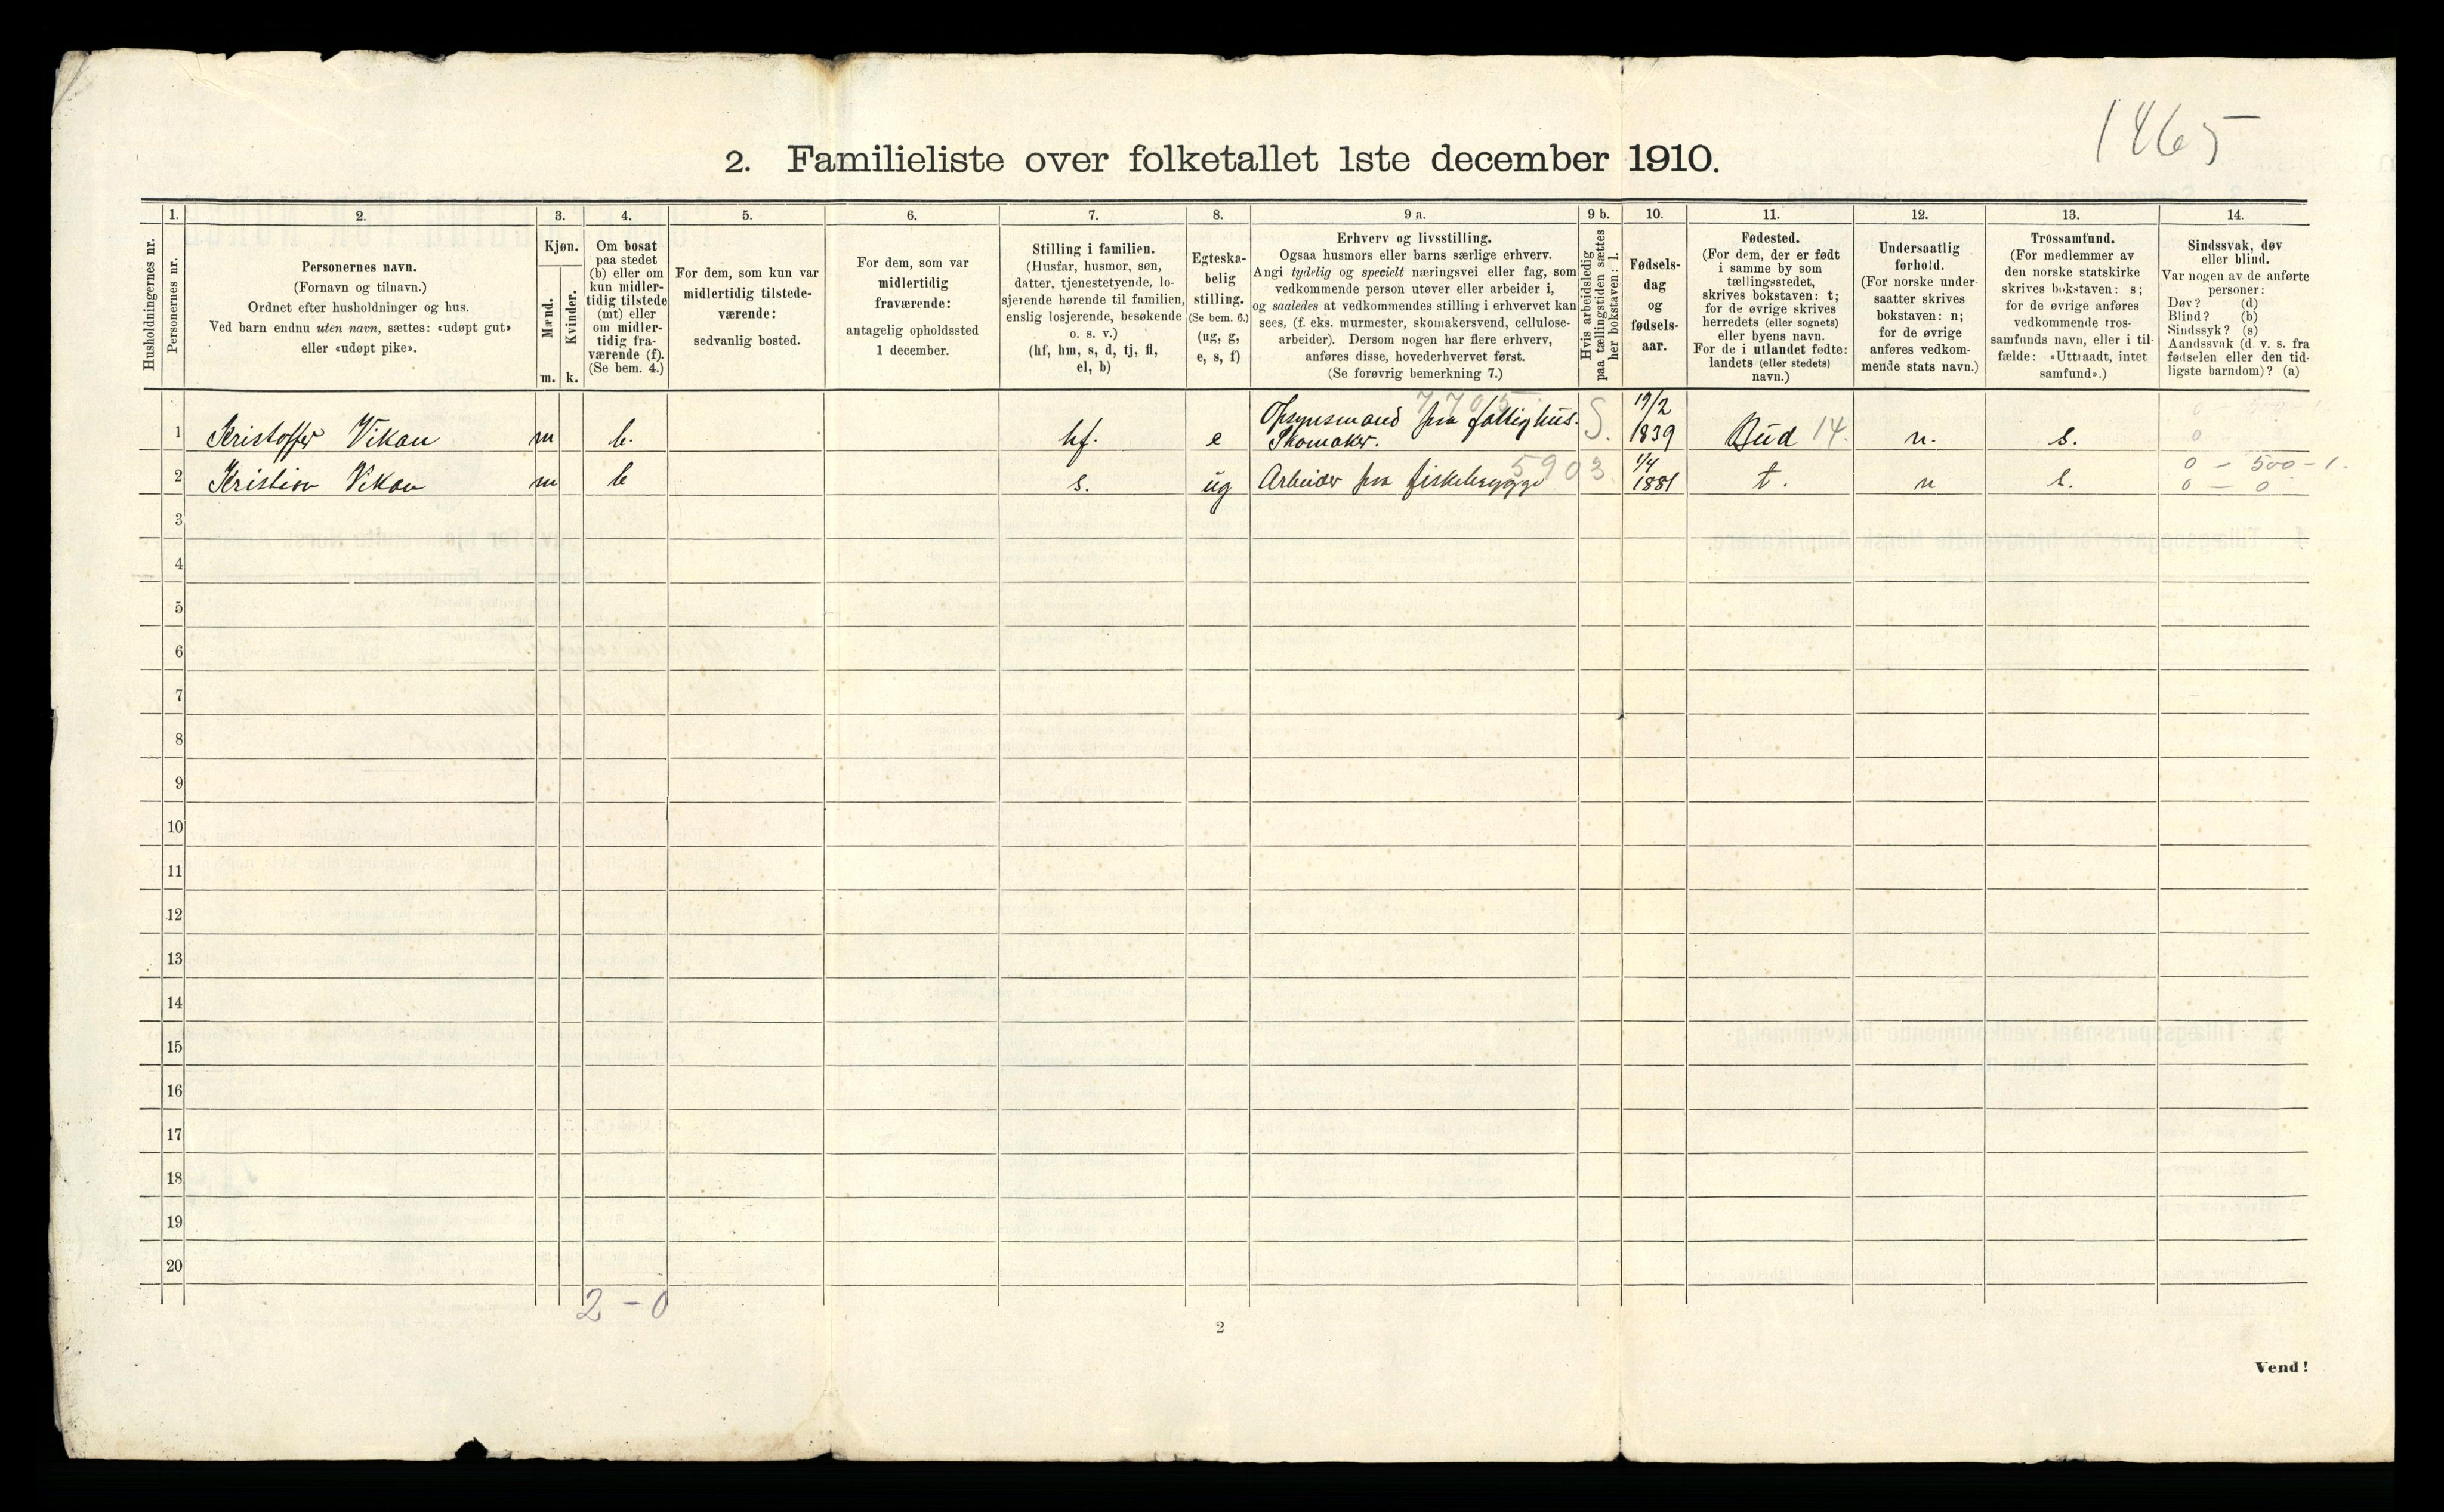 1465
2. Familieliste over folketallet 1ste december 1910.
Husholdningernes nr.
1.
Personernes nr.
2.
Personernes navn.
(Fornavn og tilnavn.)
Ordnet efter husholdninger og hus.
Ved barn endnu uten navn, sættes: «udøpt gut»
eller «udøpt pike».
3.
Kjøn.
Mænd.
Kvinder.
m. k.
4.
Om bosat
paa stedet
(b) eller om
kun midler-
tidig tilstede
(mt) eller
om midler-
tidig fra-
værende (f).
(Se bem. 4.)
5.
For dem, som kun var
midlertidig tilstede-
værende:
sedvanlig bosted.
6.
For dem, som var
midlertidig
fraværende:
antagelig opholdssted
1 december.
7.
Stilling i familien.
(Husfar, husmor, søn,
datter, tjenestetyende, lo-
sjerende hørende til familien,
enslig losjerende, besøkende
o. s. v.)
(hf, hm, s, d, tj, fl,
el, b)
8.
Egteska-
belig
stilling.
(Se bem. 6.)
(ug, g,
e, s, f)
9 a.
Erhverv og livsstilling.
Ogsaa husmors eller barns særlige erhverv.
Angi tydelig og specielt næringsvei eller fag, som
vedkommende person utøver eller arbeider i,
og saaledes at vedkommendes stilling i erhvervet kan
sees, (f. eks. murmester, skomakersvend, cellulose-
arbeider). Dersom nogen har flere erhverv,
anføres disse, hovederhvervet først.
(Se forøvrig bemerkning 7.)
9 b.
Hvis arbeidsledig
paa tællingstiden sættes
her bokstaven: l.
10.
Fødsels-
dag
og
fødsels-
aar.
11.
Fødested.
(For dem, der er født
i samme by som
tællingsstedet,
skrives bokstaven: t;
for de øvrige skrives
herredets (eller sognets)
eller byens navn.
For de i utlandet fødte:
landets (eller stedets)
navn.)
12.
Undersaatlig
forhold.
(For norske under-
saatter skrives
bokstaven: n;
for de øvrige
anføres vedkom-
mende stats navn.)
13.
Trossamfund.
(For medlemmer av
den norske statskirke
skrives bokstaven: s;
for de øvrige anføres
vedkommende tros-
samfunds navn, eller i til-
fælde: «Uttraadt, intet
samfund».)
14.
Sindssvak, døv
eller blind.
Var nogen av de anførte
personer:
Døv? (d)
Blind? (b)
Sindssyk? (s)
Aandssvak (d. v. s. fra
fødselen eller den tid-
ligste barndom)? (a)
1 Kristoffer Vikan m b. hf. e Opsynsmand paa fattighus. Skomaker. S. 19/2 1839 Bud 14. n. s. 0
2 Kristian Vikan m b s. ug Arbeider paa fiskebrygge 5903. 1/4 1881 t. n s. 0 - 500 - 1.
0 - 0
3
4
5
6
7
8
9
10
11
12
13
14
15
16
17
18
19
20
2 - 0
2
Vend!